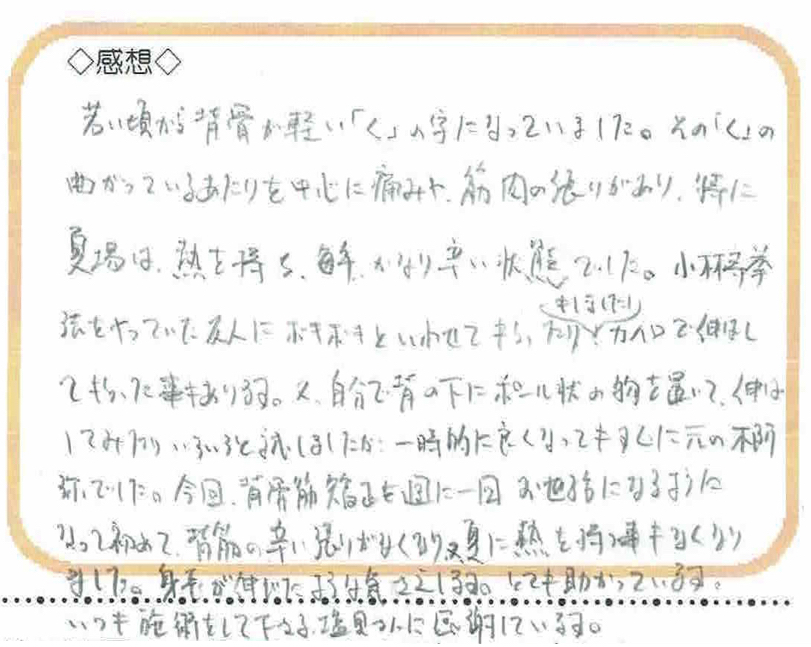 ◇感想◇
若い頃から背骨が軽い「く」の字になっていました。その「く」の
曲がっているあたりを中心に痛みや、筋肉の張りがあり、特に
夏場は、熱を持ち、毎年、かなり辛い状態でした。少林寺拳
もしました)
法をやっていた友人にボキボキといわせてもらったり、力へロで伸ばし
てもらった事もあります。又、自分で背の下にポール状の物を置いて、伸ば
してみたりいろいろと試しましたが、一時的に良くなってもすぐに元の木阿
弥でした。今回、背骨筋矯正を週に一回お世話になるように
なって初めて、背筋の辛い張りがなくなり又夏に熱を持つ事もなくなり
ました。身長が伸びたような気さえします。とても助かっています。
いつも施術をして下さる塩見さんに感謝しています。